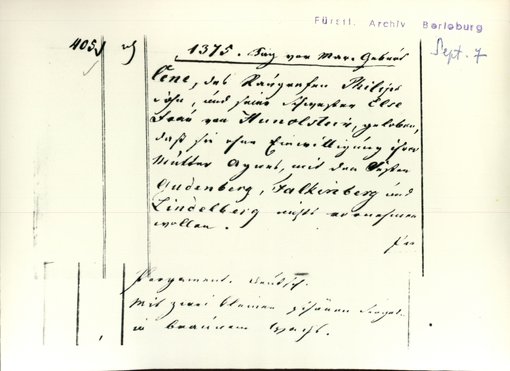 Fürstl. Archiv Berleburg
Sept. 7
405
1375. Tag vor Mar. Geburt
Cene, des Raugrafen Philips
sohn, und seine Schwester Else
Frau von Hunolstein, geloben,
daß sie ohne Einwilligung ihrer
Mutter Agnes, mit den Vesten
Gudenberg, Falkinberg und
Lindelberg nichts vornehmen
wollen.
Pergament. Deutsch.
Mit zwei kleinen Siegeln
in braunem Wachs.